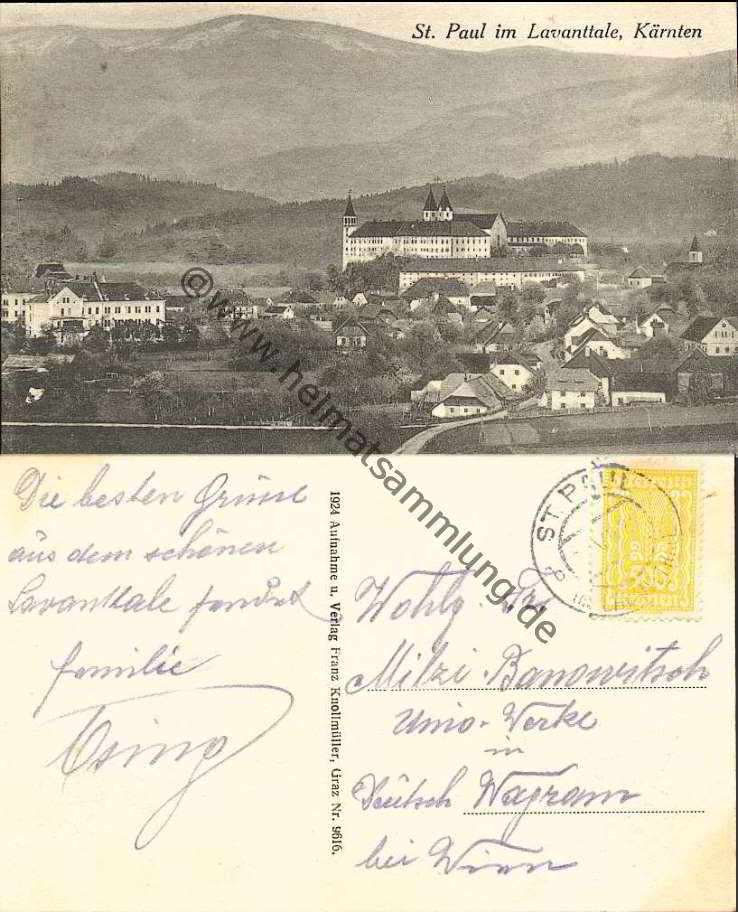 St. Paul im Lavanttale, Kärnten
@www.heimatsammlung.de
Die besten Grüsse
aus dem schönen
Lavanttale sendet
familie
1924 Aufnahme u. Verlag Franz Knollmüller, Graz Nr. 9616.
ST. PAUL
Wohlg.
Mitzi Banowitsch
Unio-Werke
in
Deutsch Wagram
bei Wien